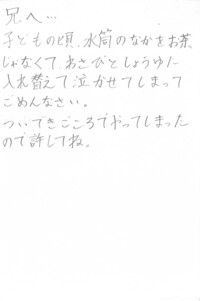 兄へ…
子どもの頃、水筒のなかをお茶
じゃなくて、わさびとしょうゆに
入れ替えて泣かせてしまって
ごめんなさい。
ついできごころでやってしまった
ので許してね。